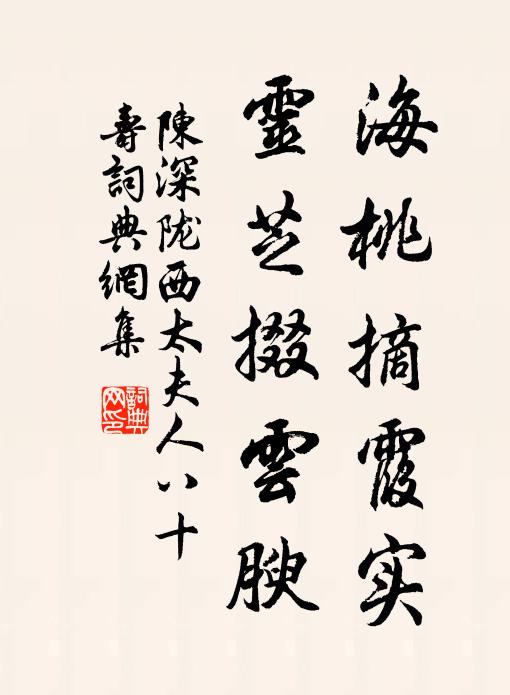 海桃摘霞实
靈芝掇雲腴
陳深陇西太夫人八十
壽詞典網集
詞典
网印